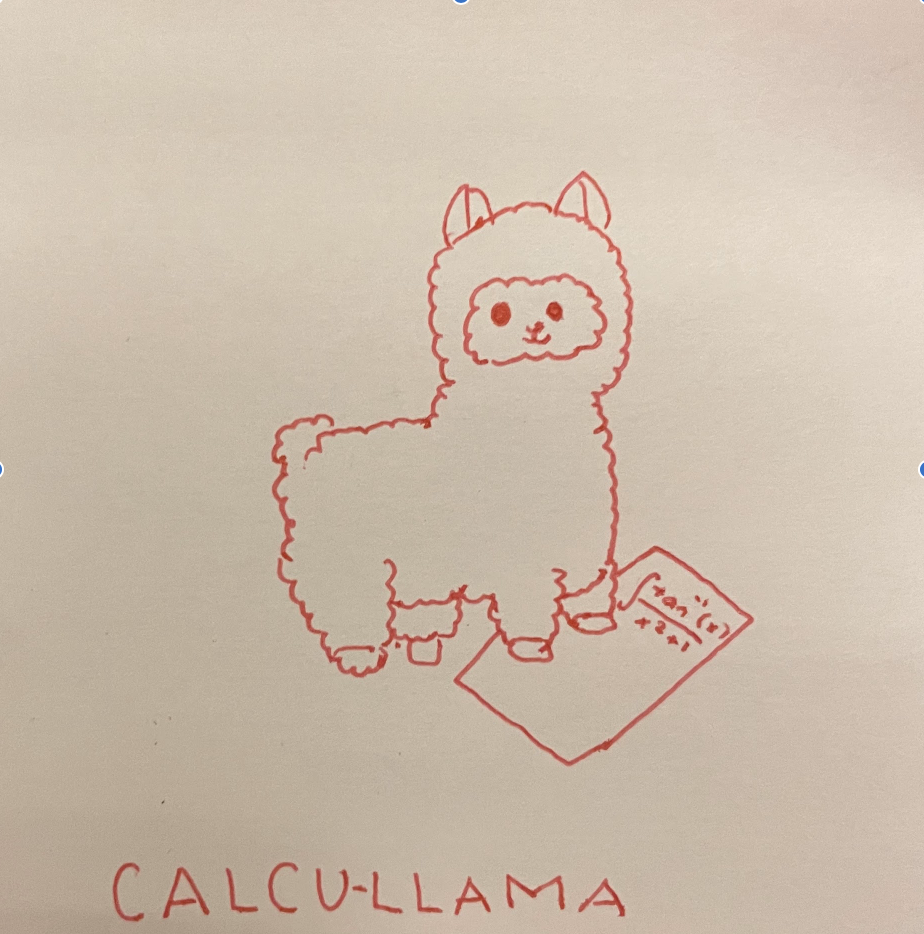 ∫ tan⁻¹(x)
x²+1
CALCU-LLAMA